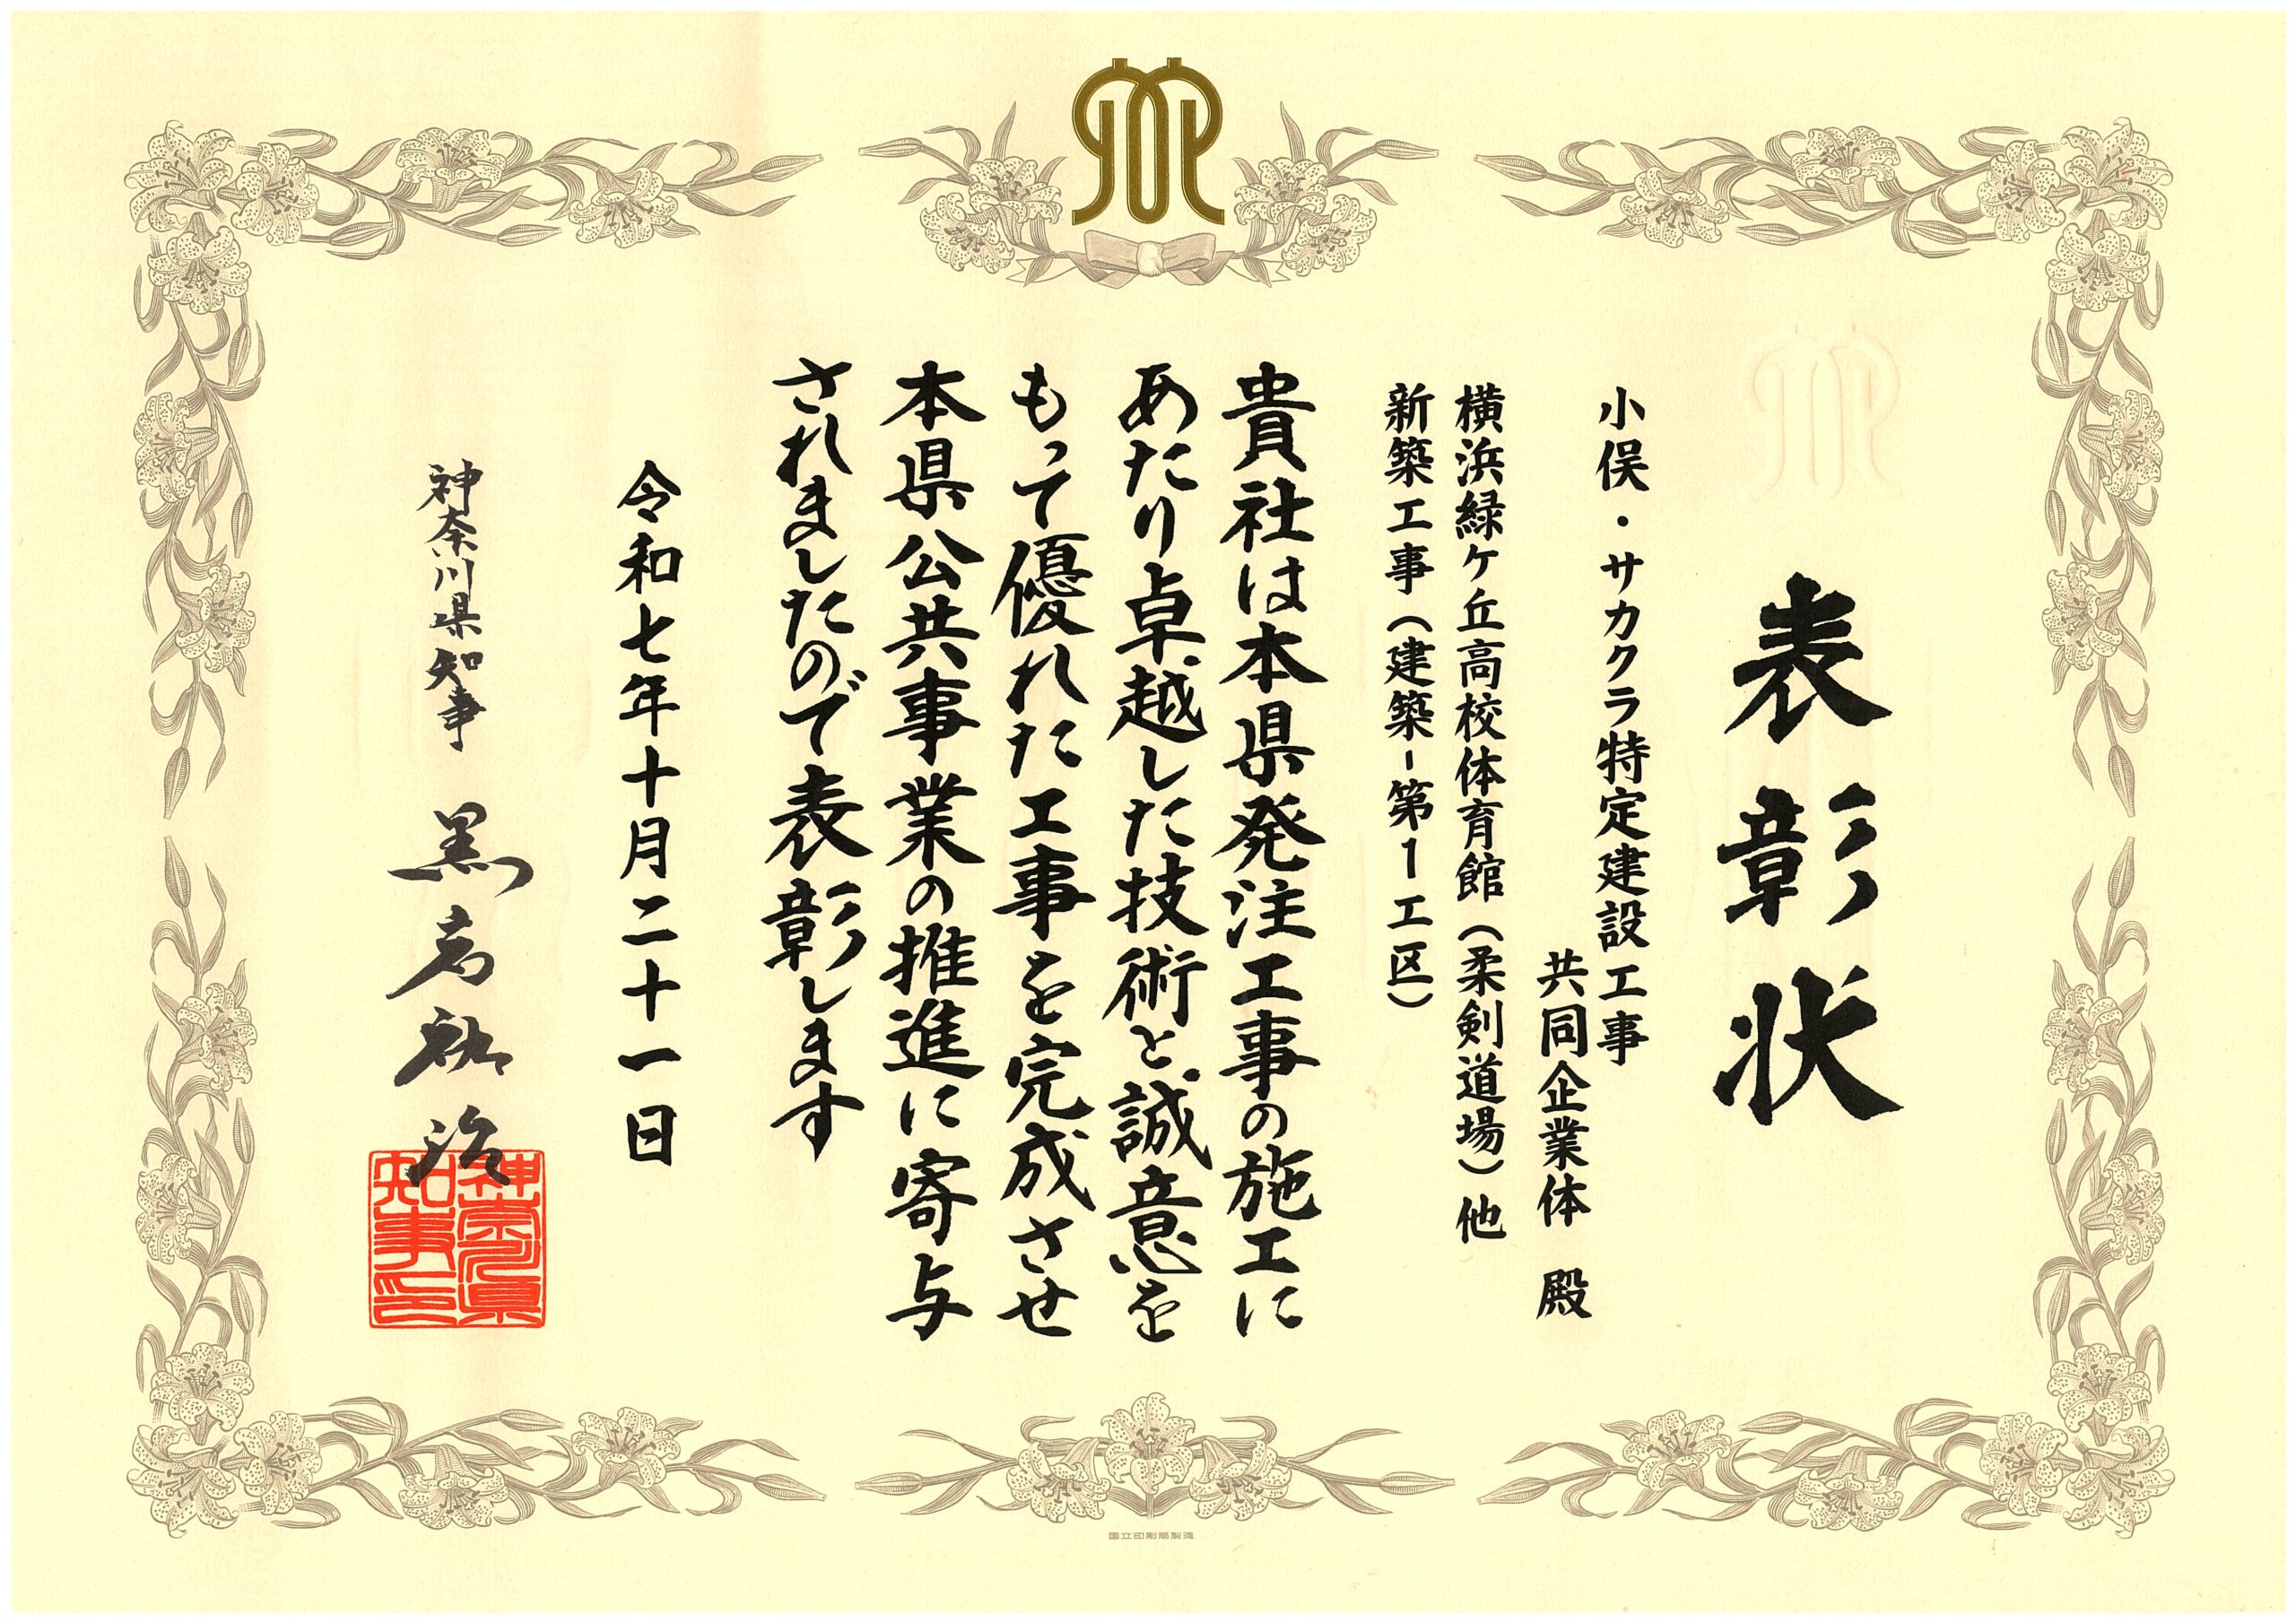 表彰状
小俣・サカクラ特定建設工事
共同企業体 殿
横浜緑ケ丘高校体育館(柔剣道場)他
新築工事(建築-第1工区)
貴社は本県発注工事の施工に
あたり卓越した技術と誠意を
もって優れた工事を完成させ
本県公共事業の推進に寄与
されましたので表彰します
令和七年十月二十一日
神奈川県知事 黒岩祐治
神奈川県
知事印
国立印刷局製造